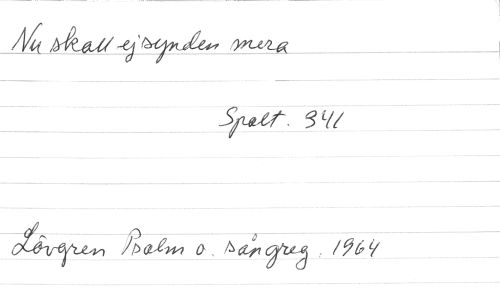 Nu skall ej synden mera
Spalt. 341
Lövgren Psalm o. sångreg. 1964